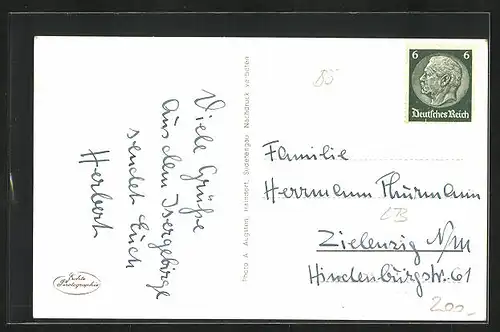 Viele Grüße
aus dem Isergebirge
sendet Euch
Herbert
Echte
Photographie
Photo A. Augsten, Haindorf, Sudetengau Nachdruck verboten
85
6 6
Deutsches Reich
Familie
Herrmann Thurmann
LB
Zielenzig N/M
Hindenburgstr. 61
200.-